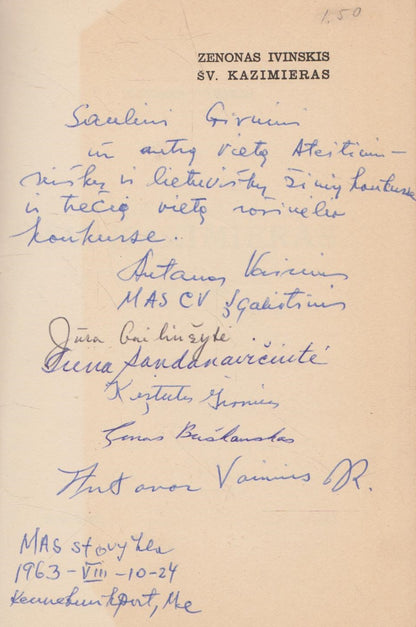 1.50
ZENONAS IVINSKIS
ŠV. KAZIMIERAS
Sauliui Girniui
už antrą vietą Ateitinin-
niškų ir lietuviškų žinių konkurse
ir trečią vietą rašinėlio
konkurse.
Antanas Vainius
MAS CV Įgaliotinis
Jūra Gailiušytė
Dandanavičiutė
Kęstutis Girnius
Linas
Antanas Vainius JR.
MAS stovykla
1963-VIII-10-24
Kennebunkport, Me